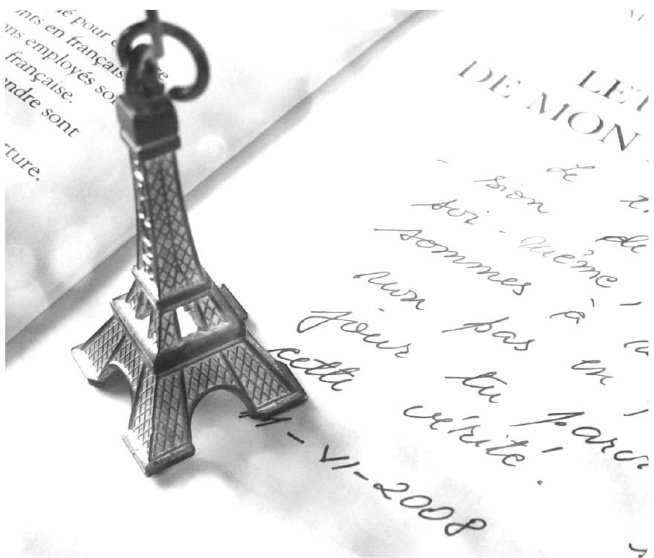 é pour
nts en français
ns employés so
française.
ndre sont
ture.
LET
DE MON
Le
sion de
soi-même,
sommes à
non pas en
jour tu parv
cette vérité.
11-VI-2008